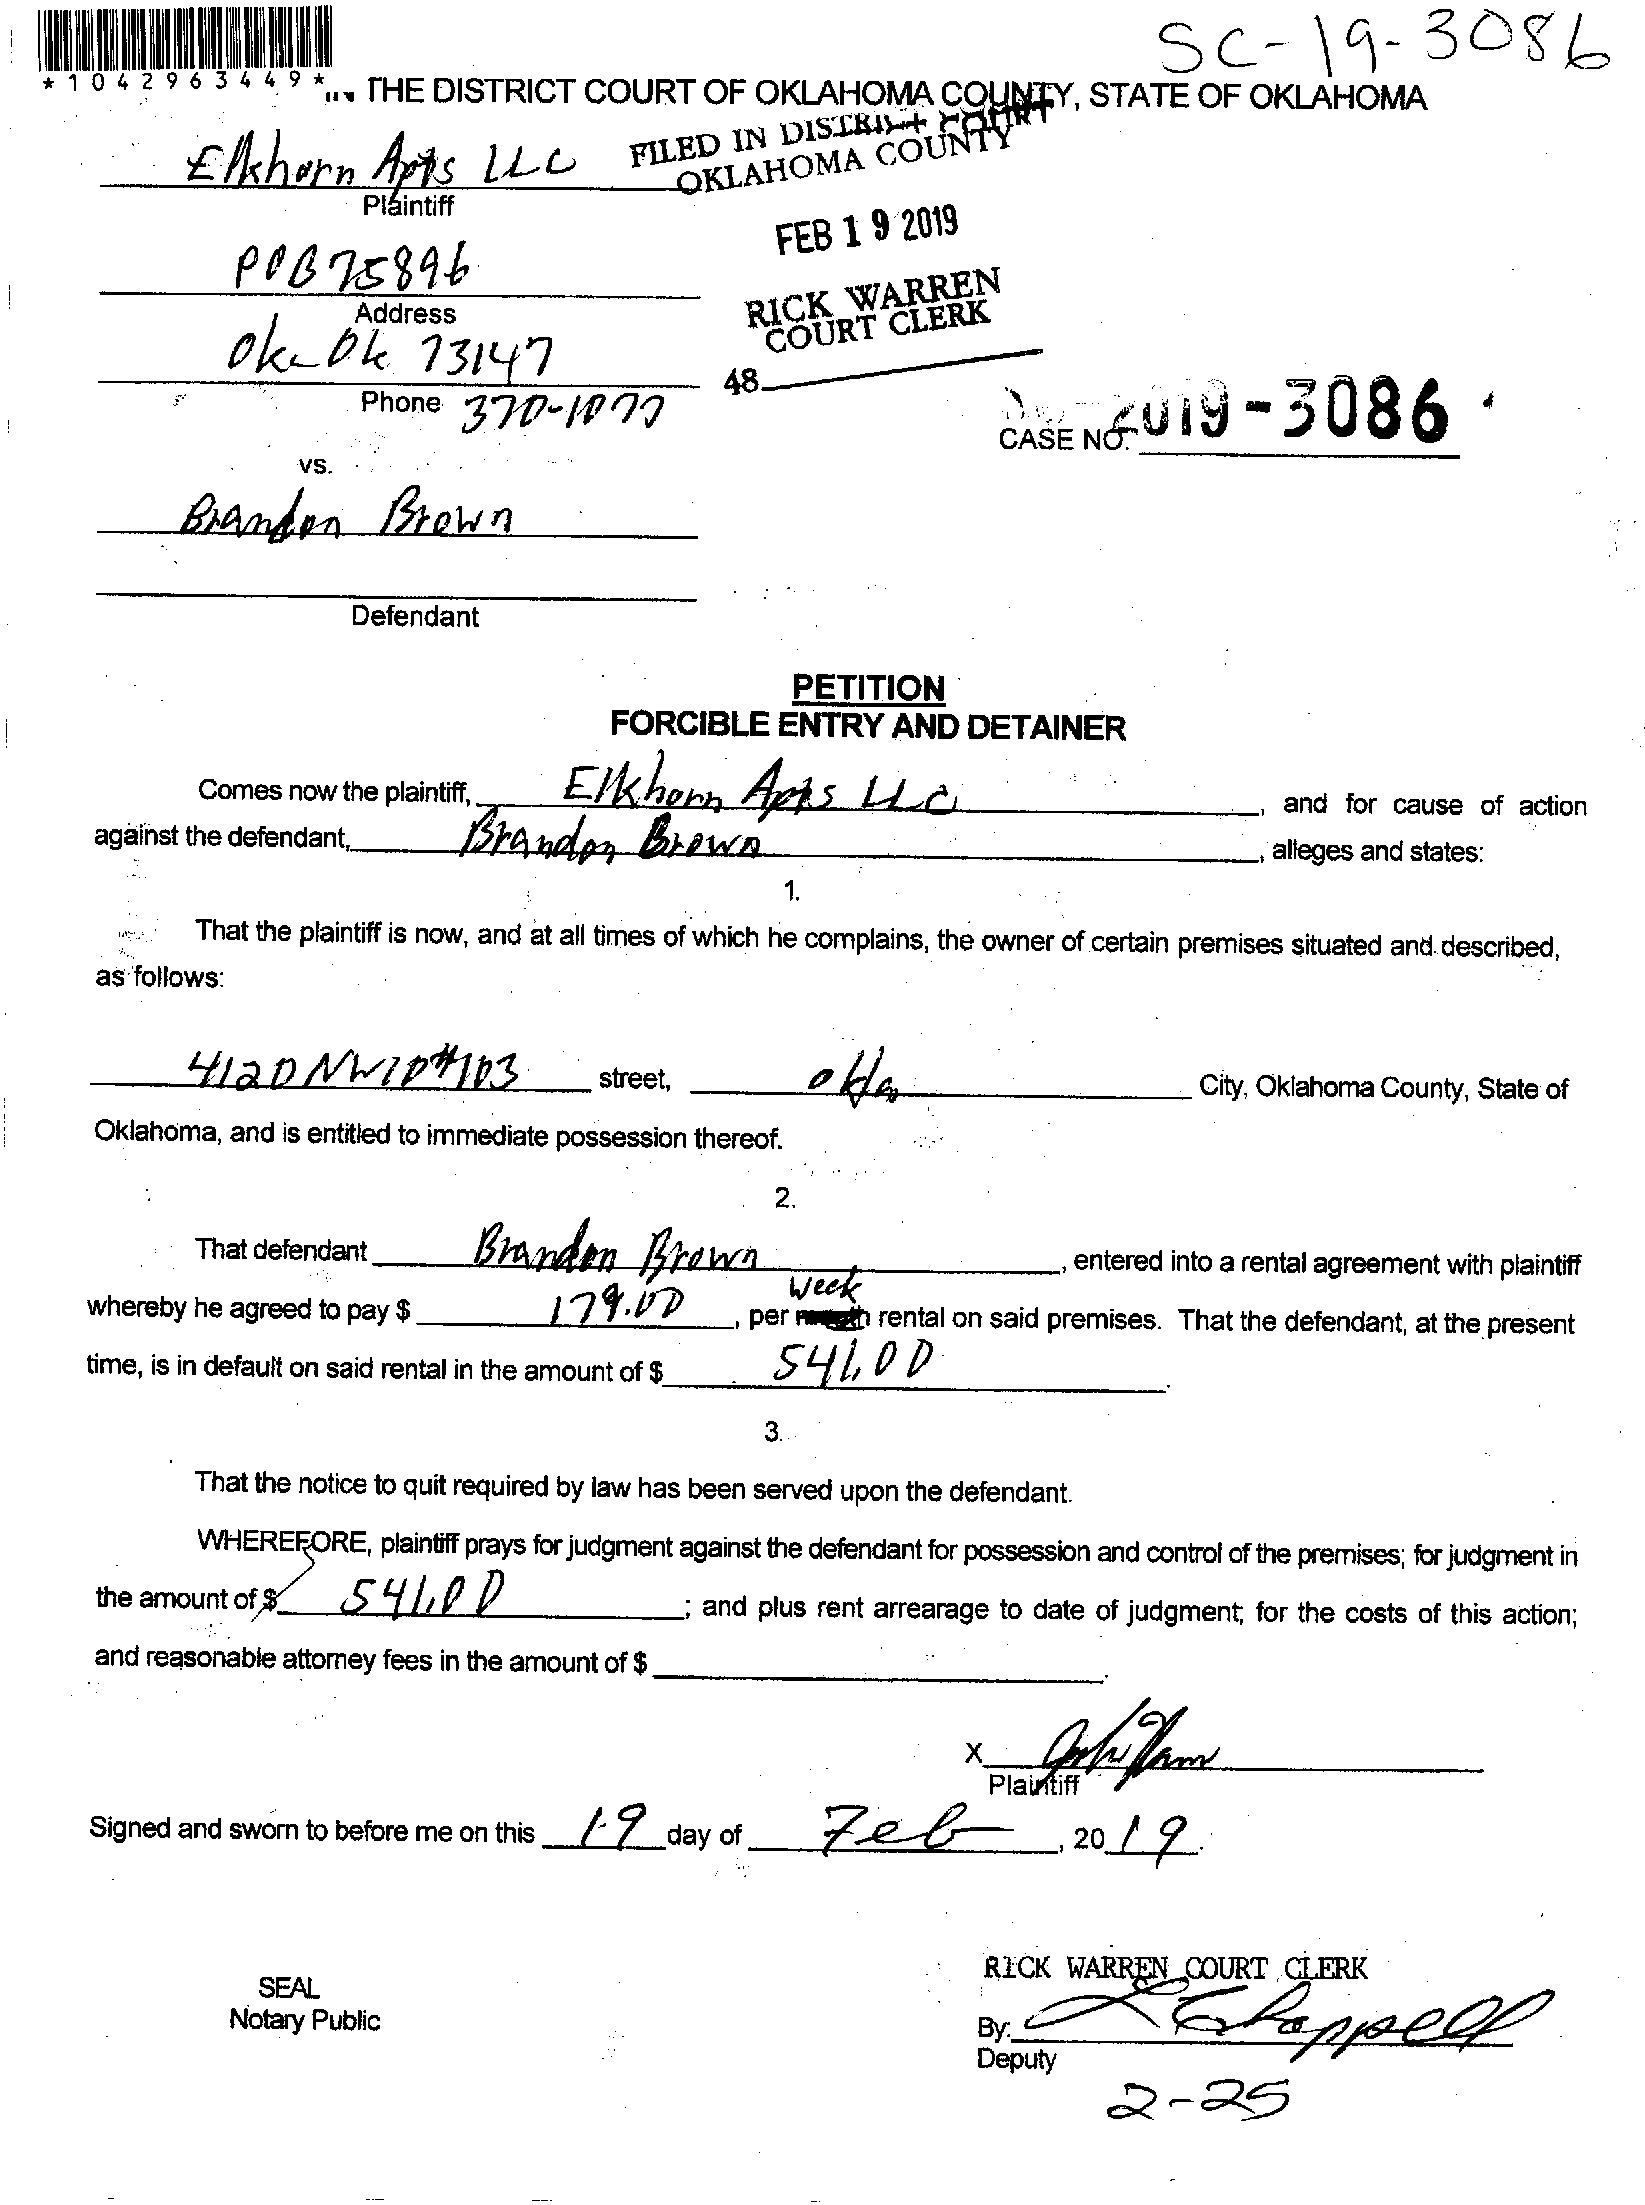 SC-19-3086
*1042963449*
THE DISTRICT COURT OF OKLAHOMA COUNTY, STATE OF OKLAHOMA
FILED IN DISTRICT COURT
OKLAHOMA COUNTY
Elkhorn Apts LLC
Plaintiff
FEB 19 2019
POB 75896
RICK WARREN
COURT CLERK
Address
Ok 73147
48
Phone 370-1077
CASE NO. 2019-3086
vs.
Brandon Brown
Defendant
PETITION
FORCIBLE ENTRY AND DETAINER
Comes now the plaintiff, Elkhorn Apts LLC, and for cause of action
against the defendant, Brandon Brown, alleges and states:
1.
That the plaintiff is now, and at all times of which he complains, the owner of certain premises situated and described,
as follows:
4120 NW10#103 street, okla City, Oklahoma County, State of
Oklahoma, and is entitled to immediate possession thereof.
2.
That defendant Brandon Brown, entered into a rental agreement with plaintiff
week
whereby he agreed to pay $ 179.00, per month rental on said premises. That the defendant, at the present
time, is in default on said rental in the amount of $ 541.00.
3.
That the notice to quit required by law has been served upon the defendant.
WHEREFORE, plaintiff prays for judgment against the defendant for possession and control of the premises; for judgment in
the amount of $ 541.00; and plus rent arrearage to date of judgment; for the costs of this action;
and reasonable attorney fees in the amount of $
X
Plaintiff
Signed and sworn to before me on this 19 day of Feb, 2019.
RICK WARREN COURT CLERK
SEAL
Notary Public
By: L Chappell
Deputy
2-25